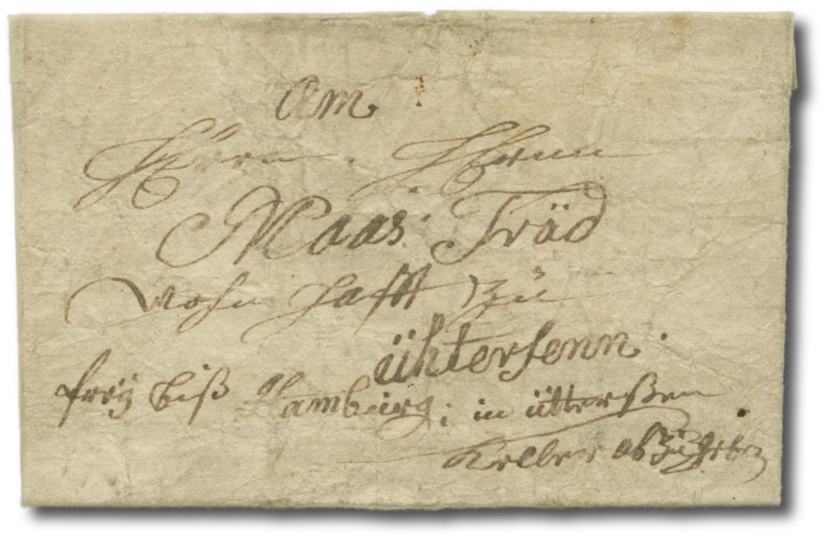 Am
Herrn, Herrn
Maas: Träd
wohn hafft zu
ühtersenn.
frey biß Hamburg; in ütterßen
Keller abzugeben